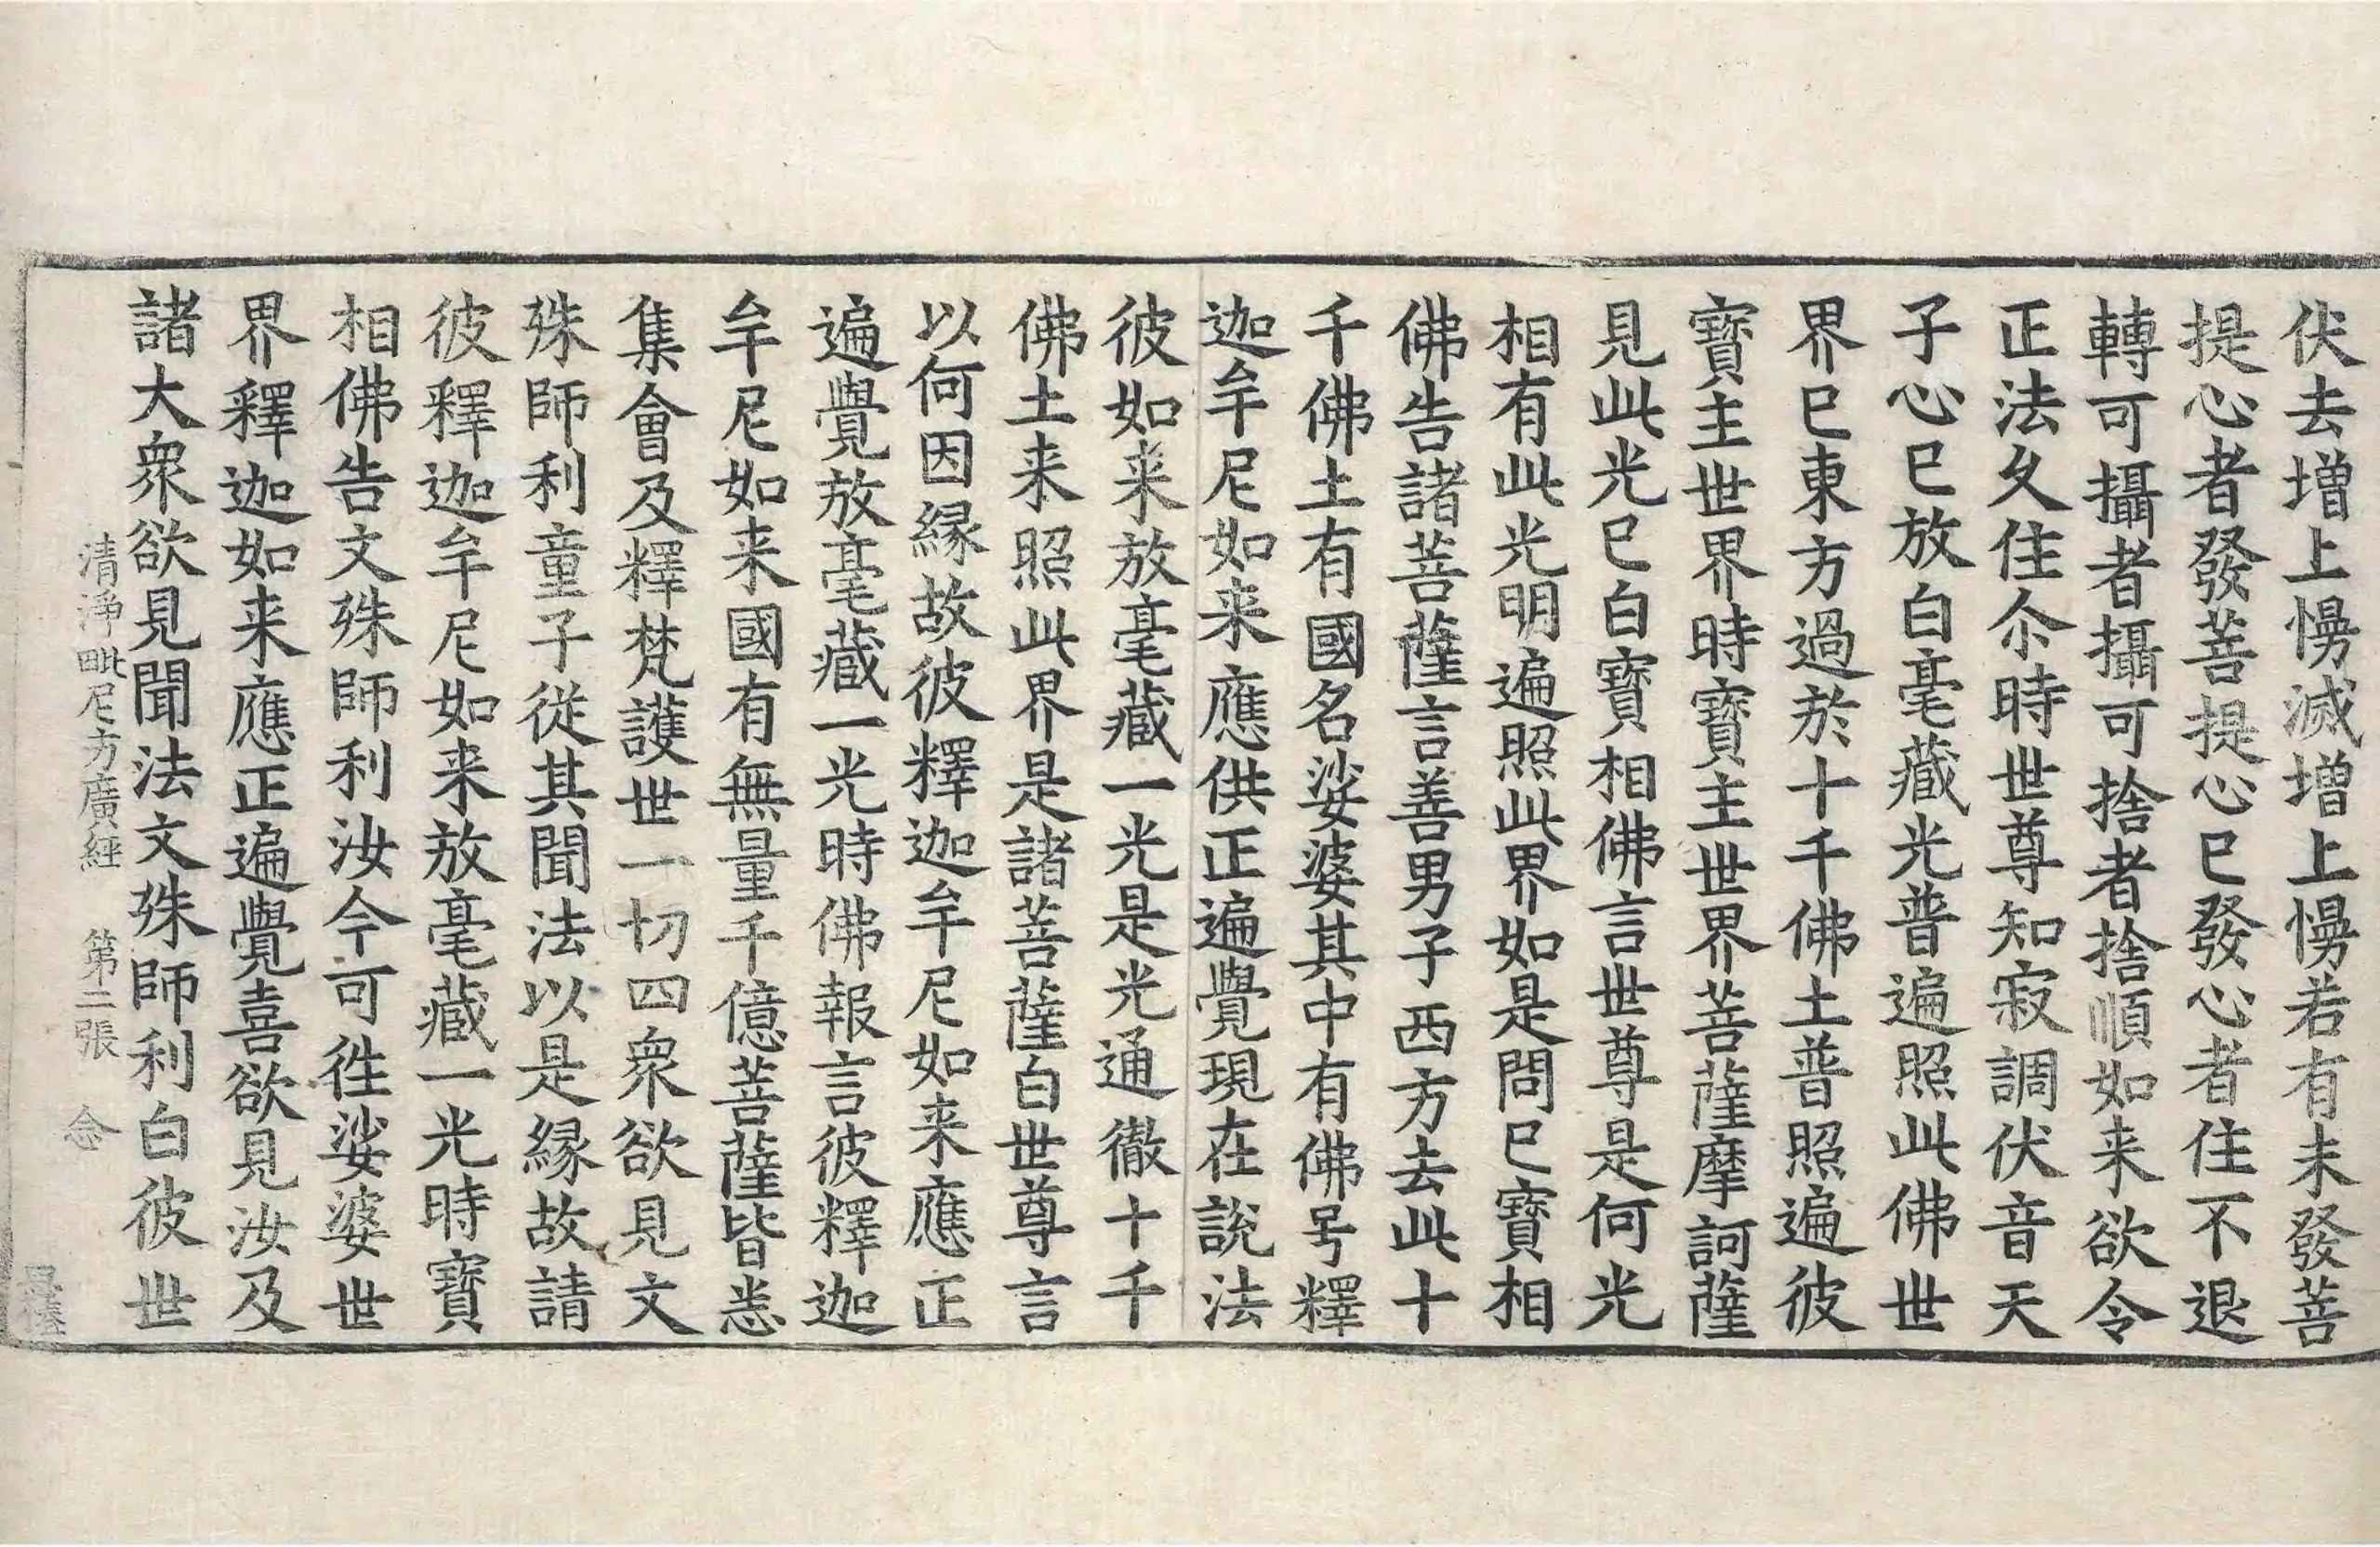 伏去增上慢滅增上慢若有未發菩
提心者發菩提心已發心者住不退
轉可攝者攝可捨者捨順如来欲令
正法久住尒時世尊知寂調伏音天
子心已放白毫藏光普遍照此佛世
界已東方過於十千佛土普照遍彼
寶主世界時寶主世界菩薩摩訶薩
見此光已白寶相佛言世尊是何光
相有此光明遍照此界如是問已寶相
佛告諸菩薩言善男子西方去此十
千佛土有國名娑婆其中有佛号釋
迦牟尼如来應供正遍覺現在説法
彼如来放毫藏一光是光通徹十千
佛土来照此界是諸菩薩白世尊言
以何因緣故彼釋迦牟尼如来應正
遍覺放毫藏一光時佛報言彼釋迦
牟尼如来國有無量千億菩薩皆悉
集會及釋梵護世一切四衆欲見文
殊師利童子從其聞法以是緣故請
彼釋迦牟尼如来放毫藏一光時寶
相佛告文殊師利汝今可徃娑婆世
界釋迦如来應正遍覺喜欲見汝及
諸大衆欲見聞法文殊師利白彼世
清淨毗尼方廣經 第二張 念